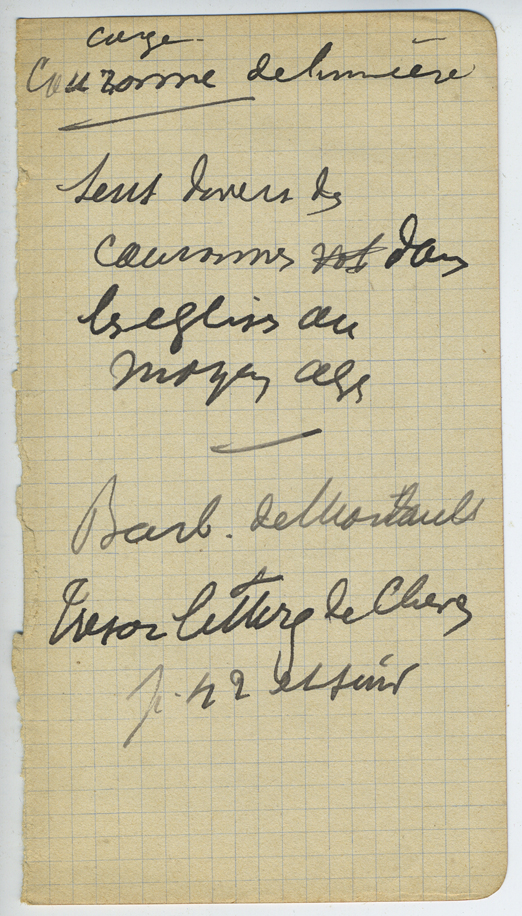 Couronne de lumière
couronnes dans
les eglises au
moyen age
Barb. de Montault
Tresor liturg de Cherv
p. 42 et suiv